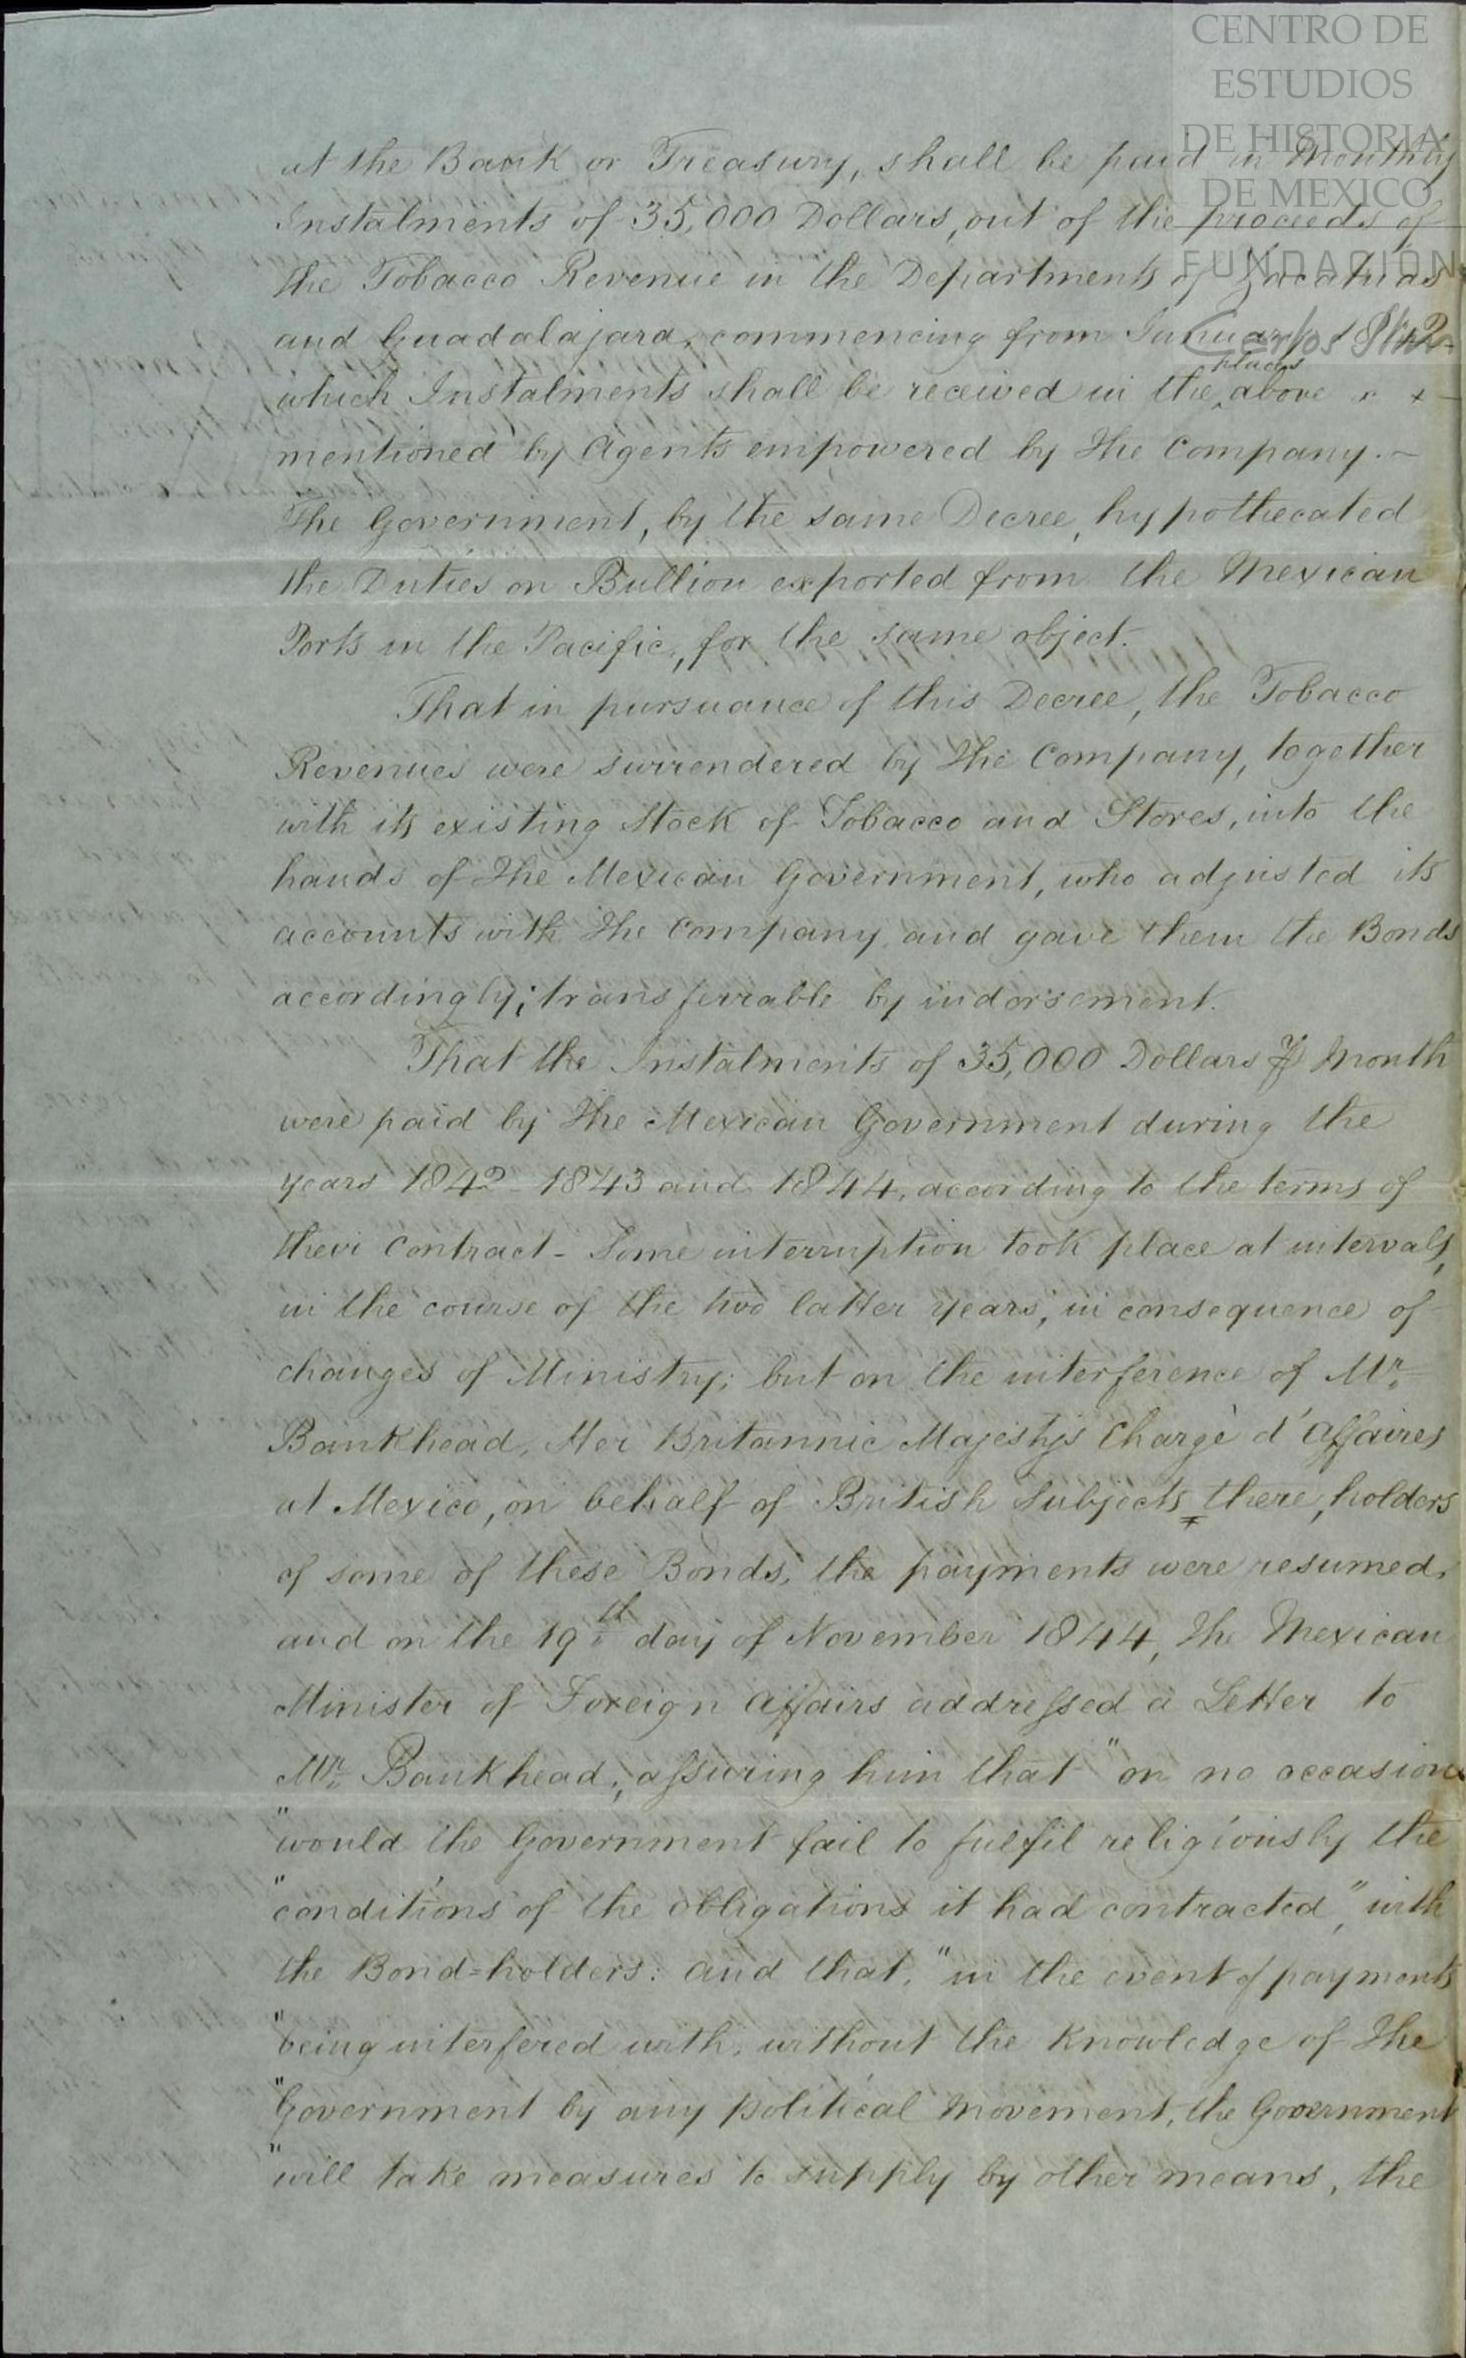 CENTRO DE
ESTUDIOS
DE HISTORIA
DE MEXICO
FUNDACIÓN
Carlos Slim
at the Bank or Treasury, shall be paid in Monthly
Instalments of 35,000 Dollars, out of the proceeds of
the Tobacco Revenue in the Departments of Zacatecas
and Guadalajara, commencing from January 1842
which Instalments shall be received in the places above x x
mentioned by Agents empowered by The Company. —
The Government, by the same Decree, hypothecated
the Duties on Bullion exported from the Mexican
Ports in the Pacific, for the same object.
That in pursuance of this Decree, the Tobacco
Revenues were surrendered by The Company, together
with its existing Stock of Tobacco and Stores, into the
hands of The Mexican Government, who adjusted its
accounts with The Company, and gave them the Bonds
accordingly; transferrable by indorsement.
That the Instalments of 35,000 Dollars ⅌ Month
were paid by The Mexican Government during the
years 1842 - 1843 and 1844, according to the terms of
their Contract - Some interruption took place at intervals,
in the course of the two latter years, in consequence of
changes of Ministry; but on the interference of Mr.
Bankhead, Her Britannic Majesty's Chargè d'Affaires
at Mexico, on behalf of British Subjects there, holders
of some of these Bonds, the payments were resumed,
and on the 19th day of November 1844, The Mexican
Minister of Foreign Affairs addressed a Letter to
Mr. Bankhead, assuring him that "on no occasion
"would the Government fail to fulfil religiously the
"conditions of the obligations it had contracted", with
the Bond=holders: and that, "in the event of payments
"being interfered with, without the knowledge of The
"Government by any political Movement, the Government
"will take measures to supply by other means, the